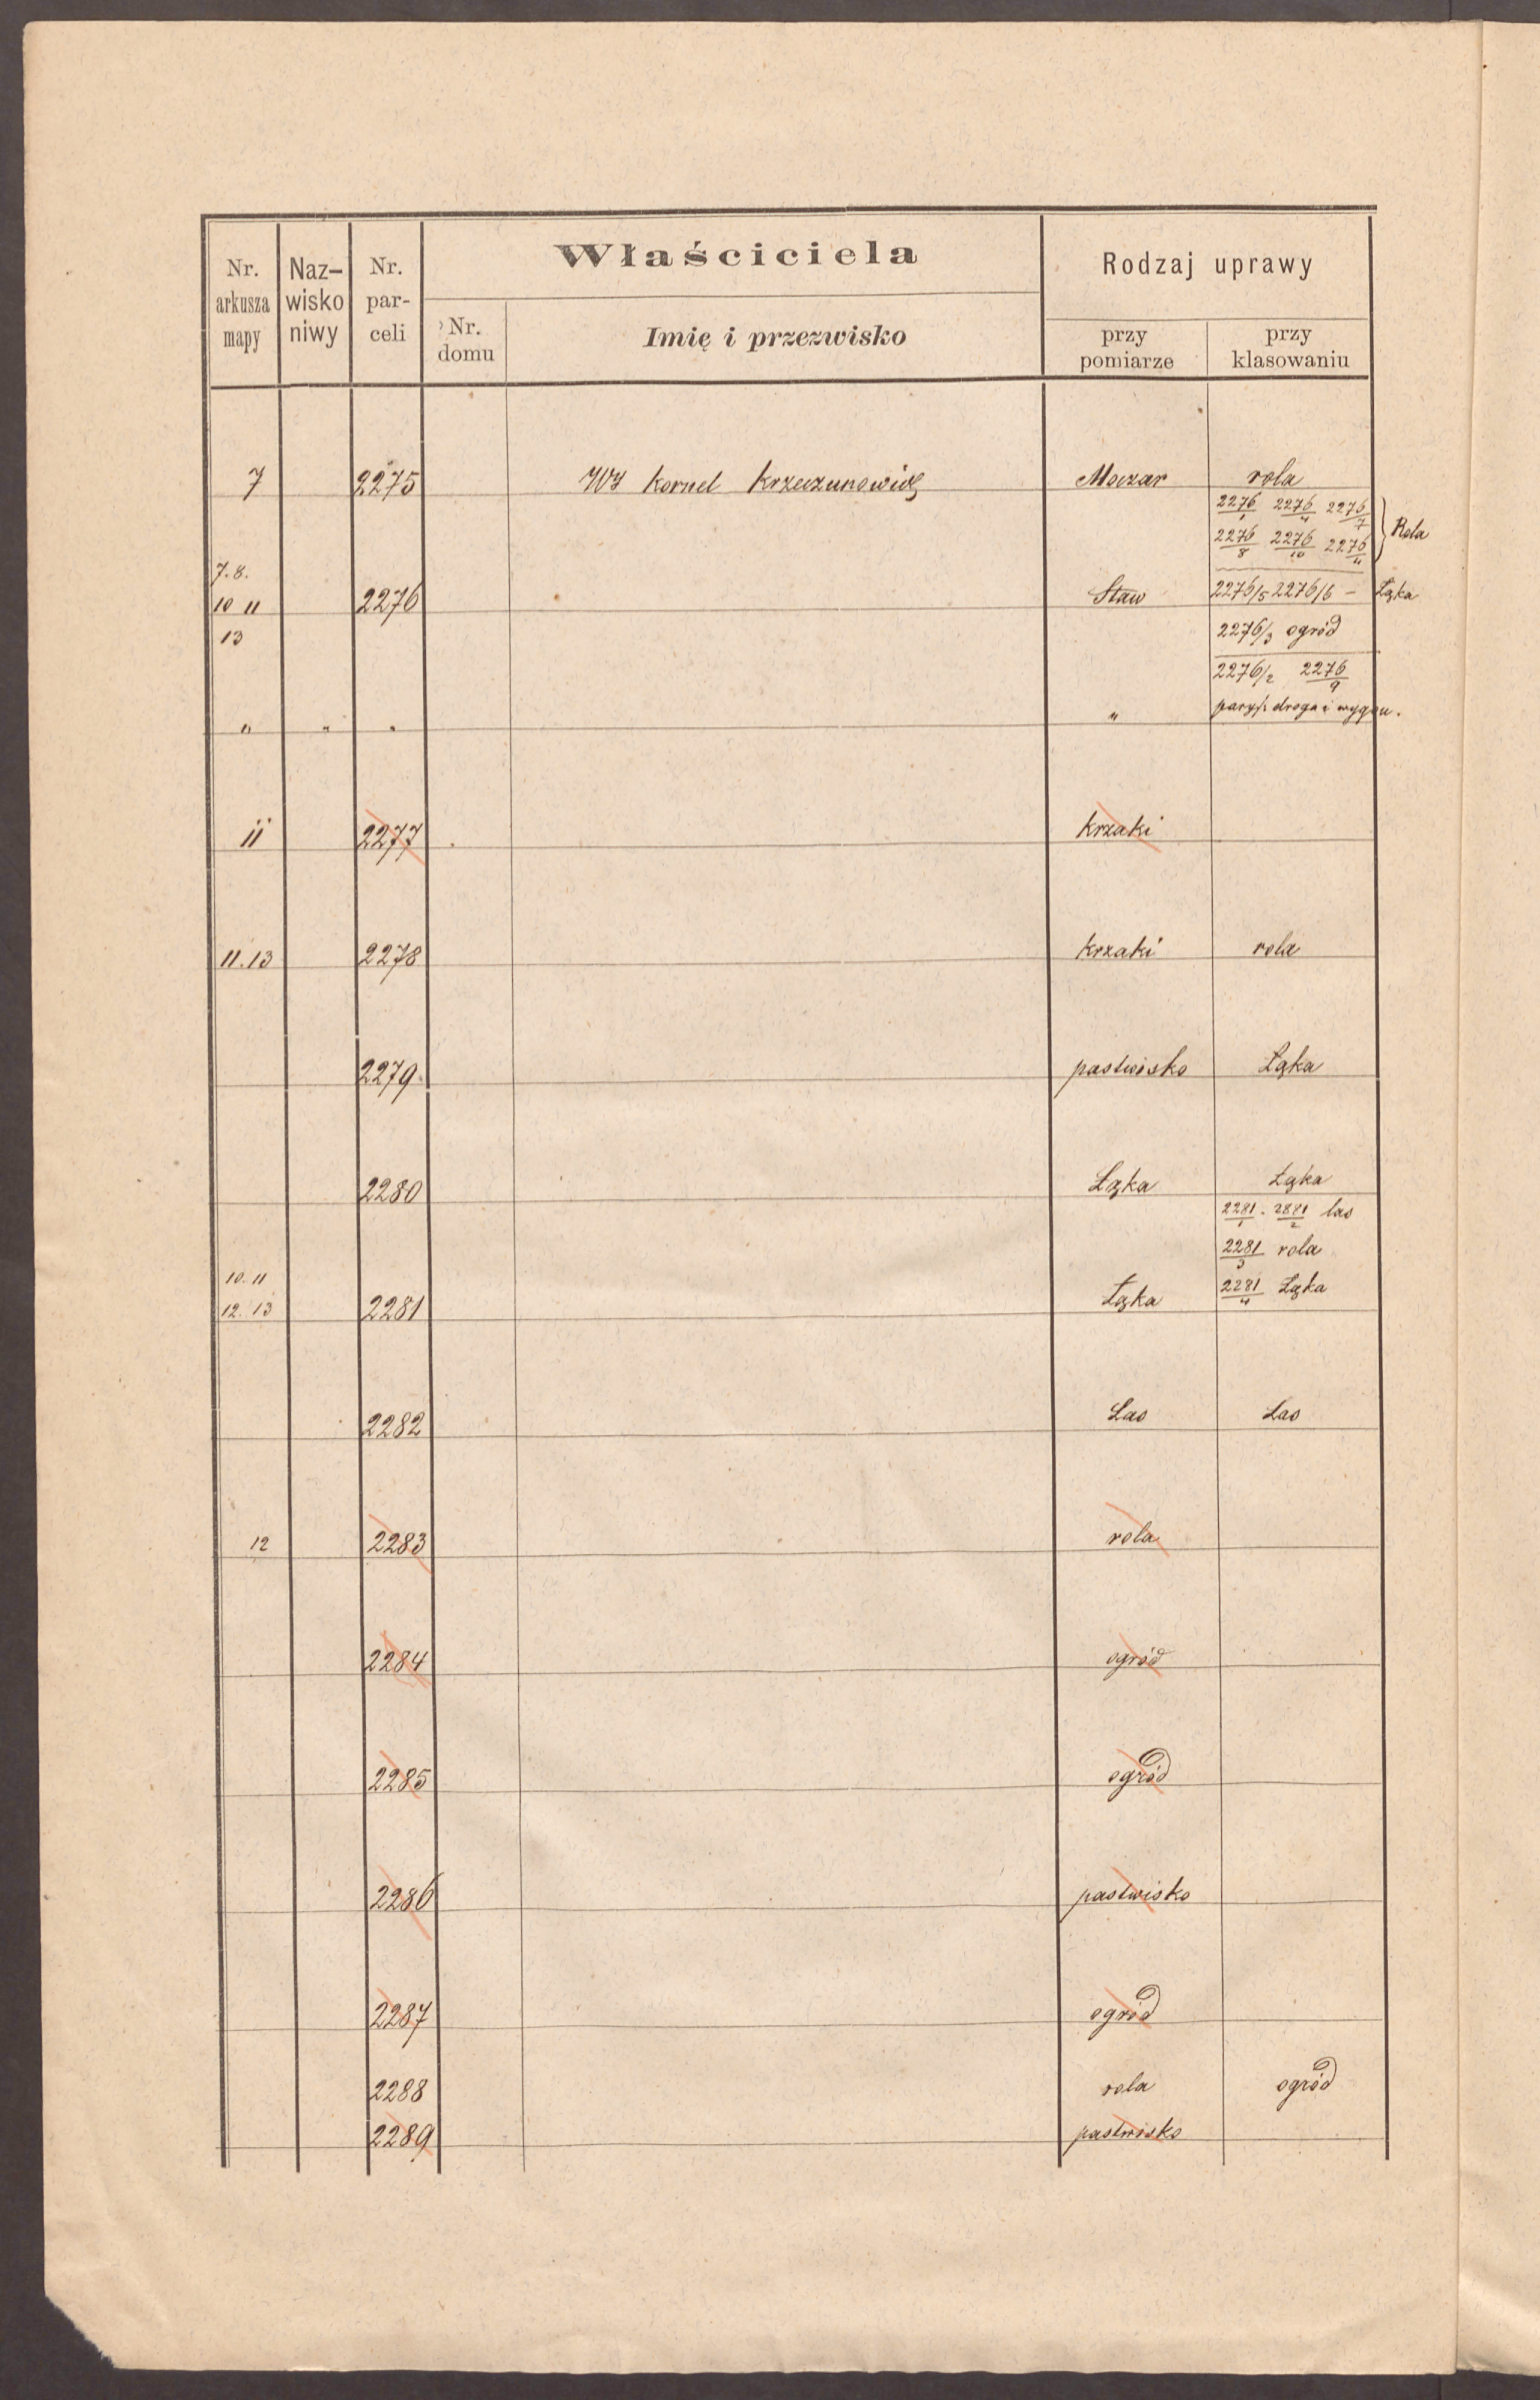 Nr. arkusza mapy Naz- wisko niwy Nr. par- celi Właściciela Rodzaj uprawy
Nr. domu Imię i przezwisko przy pomiarze przy klasowaniu
7 2275 Kornel Krzeczunowicz Moczar rola
2276/1 2276/4 2276/7
2276/8 2276/10 2276/11 } Rola
7. 8.
10 11 2276 Staw 2276/5 2276/6 — Łąka
13 2276/3 ogród
2276/2 2276/9
" " " " droga i wygon.
11 2277 krzaki
11. 13 2278 krzaki rola
2279. pastwisko Łąka
2280 Łąka Łąka
2281/1 . 2281/2 las
2281/3 rola
10. 11
12. 13 2281 Łąka 2281/4 Łąka
2282 Las Las
12 2283 rola
2284 ogród
2285 ogród
2286 pastwisko
2287 ogród
2288 rola ogród
2289 pastwisko